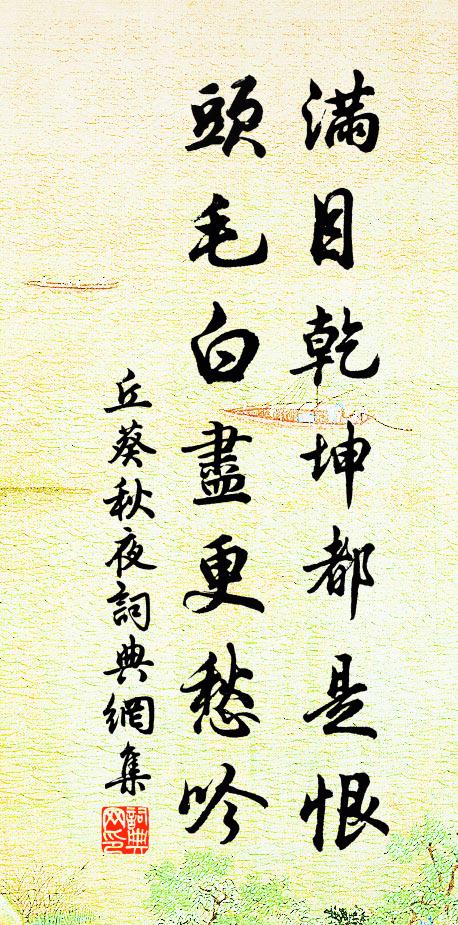 滿目乾坤都是恨
頭毛白盡更愁吟
丘葵秋夜詞典網集
詞典网印